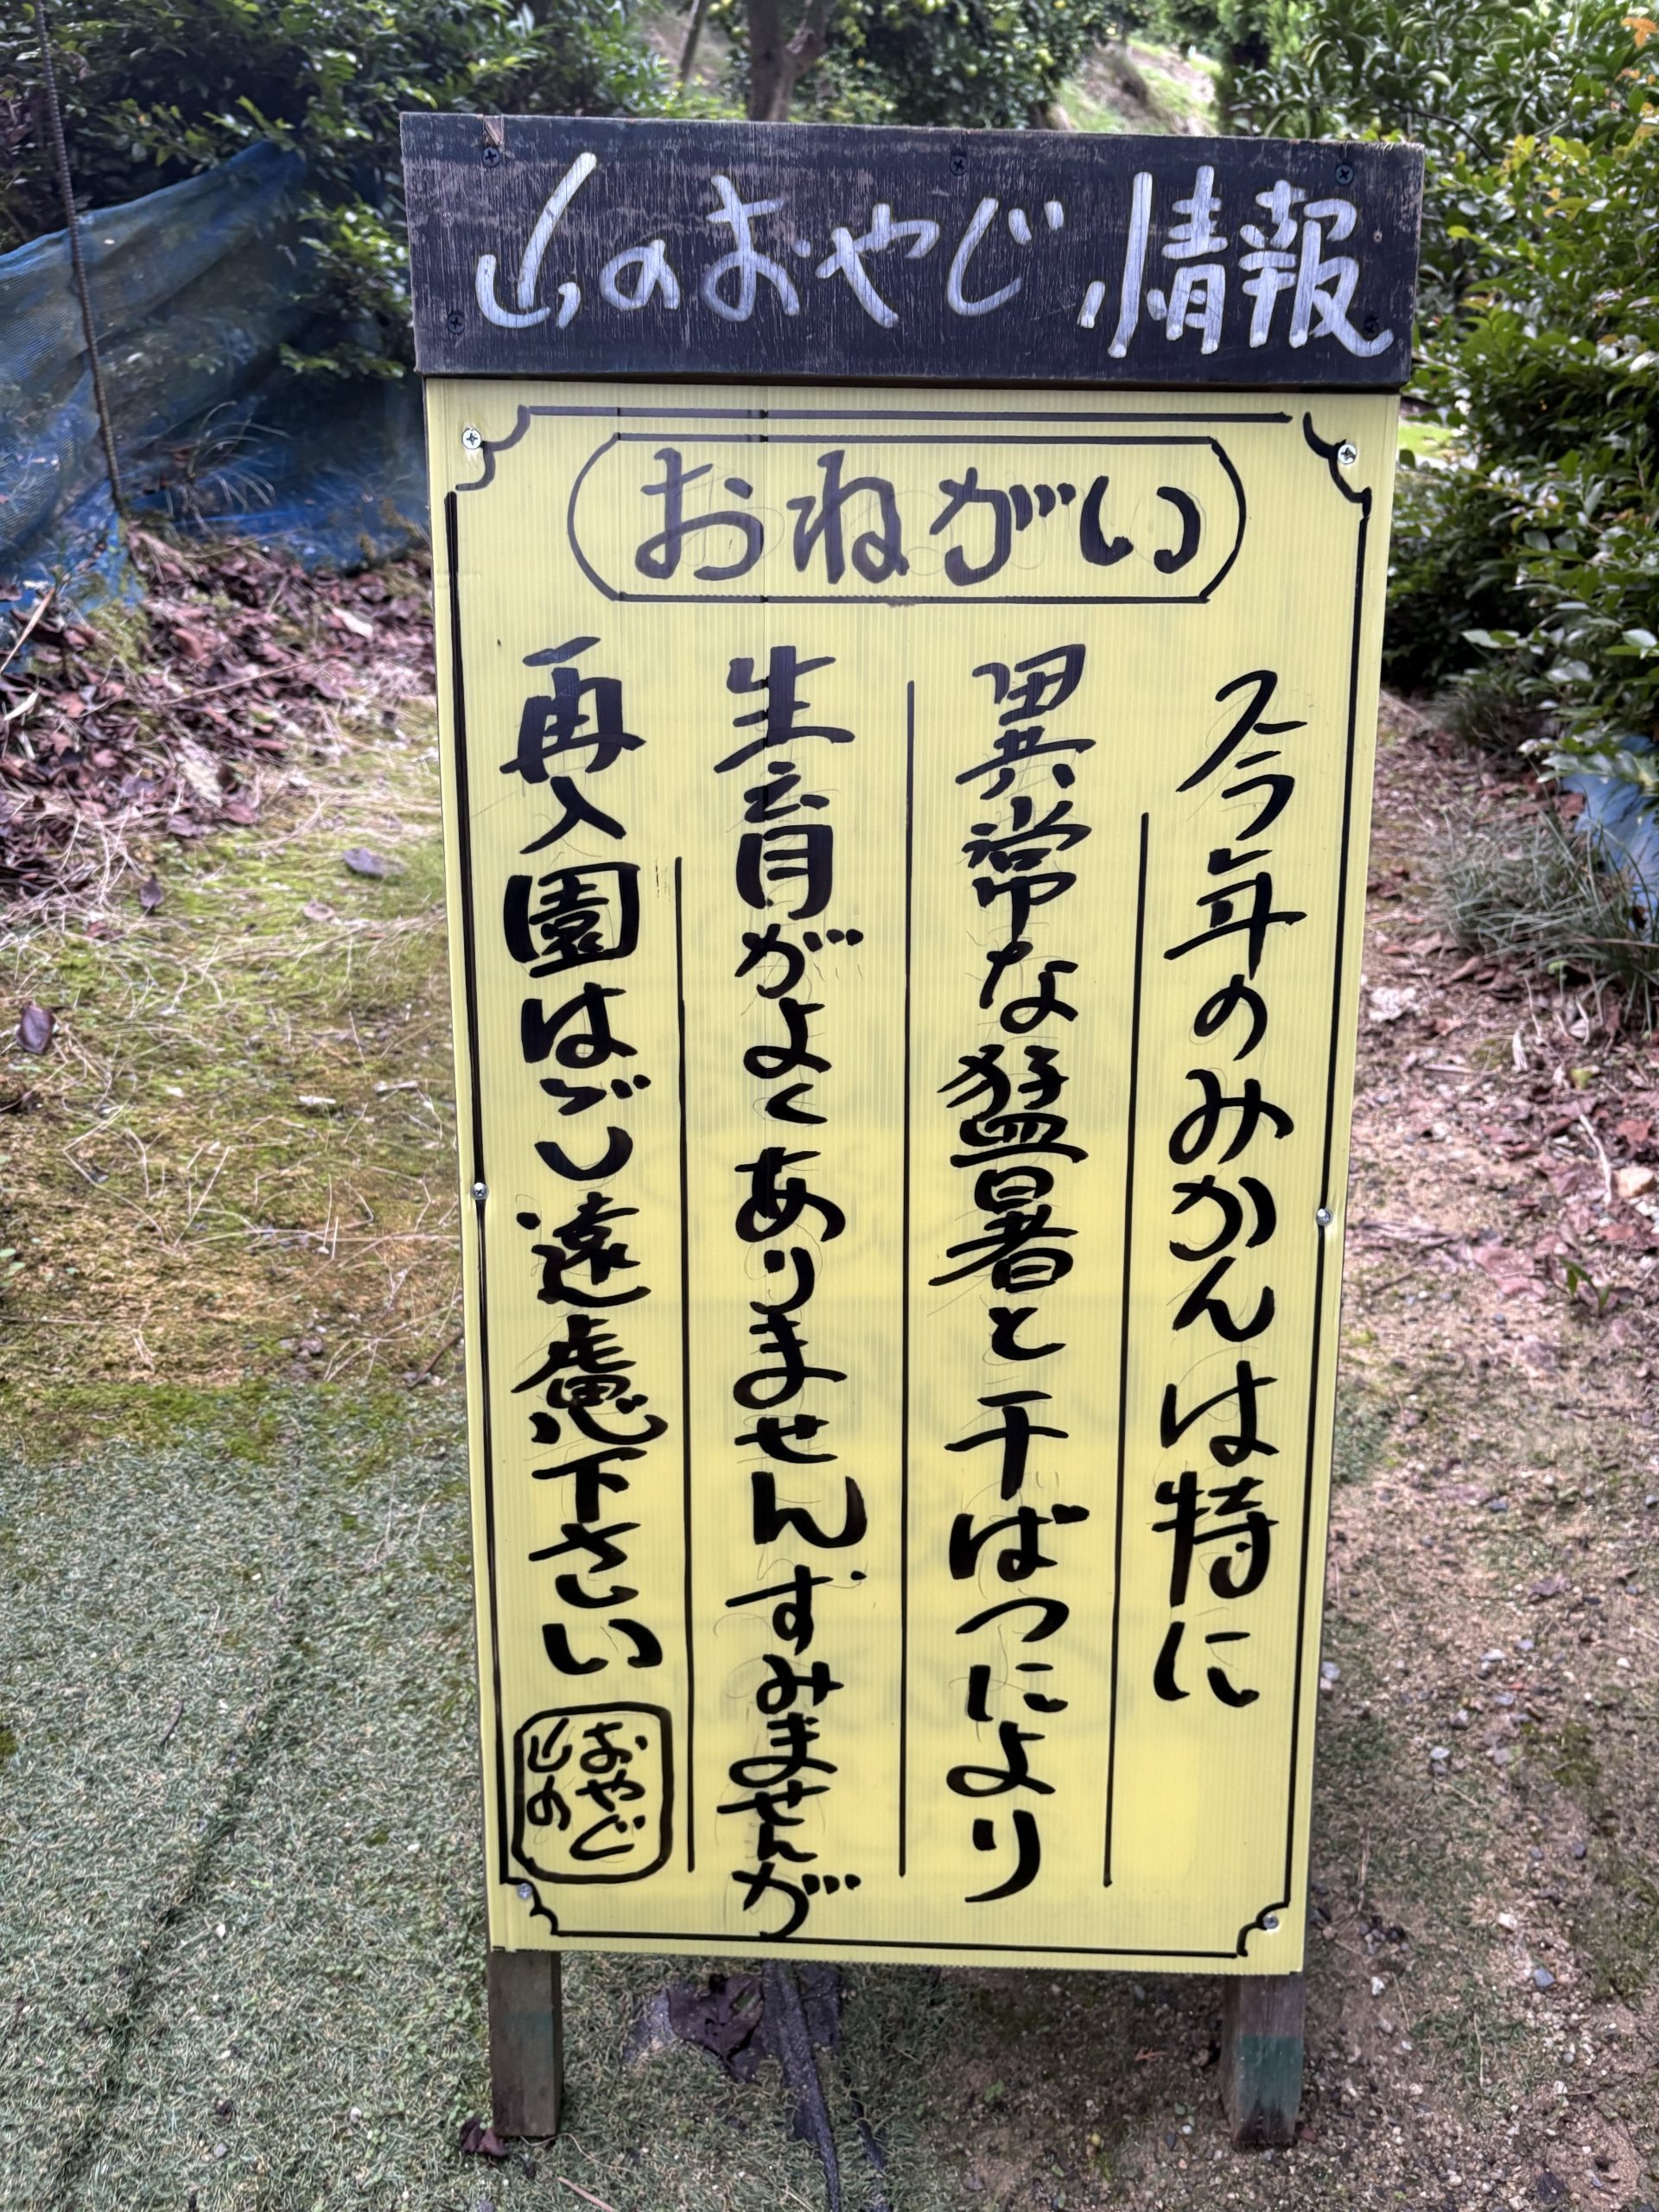 山のおやじ情報
おねがい
今年のみかんは特に
異常な猛暑と干ばつにより
生育がよくありませんすみませんが
再入園はごし遠慮下さい
山の
おやじ